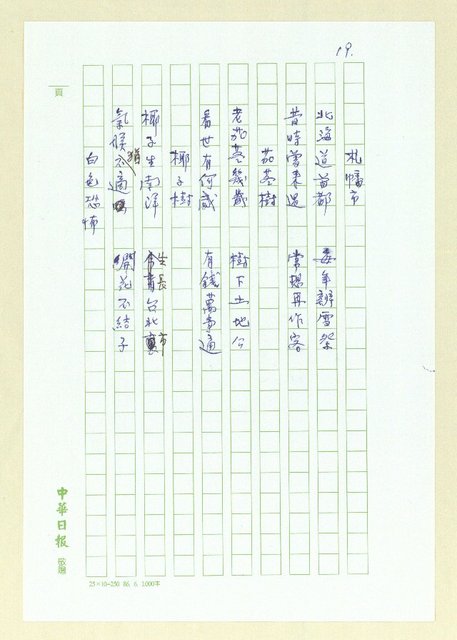 19.
札幌市
北海道首都　每年辦雪祭
昔時曾來過　常想再作客
茄苳樹
老茄苳幾歲　樹下土地公
看世有何感　有錢萬事通
椰子樹
椰子生南洋　生長台北市
氣候適　開花不結子
白色恐怖
頁
中華日報 敬贈
25×10=250 86. 6. 1000本